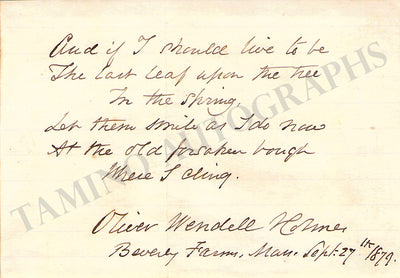 And if I should live to be
The last leaf upon the tree
In the spring.
Let them smile as I do now
At the old forsaken bough
Where I cling.
Oliver Wendell Holmes
Beverly Farms, Mass. Sept. 27th 1879.
TAMINO AUTOGRAPHS